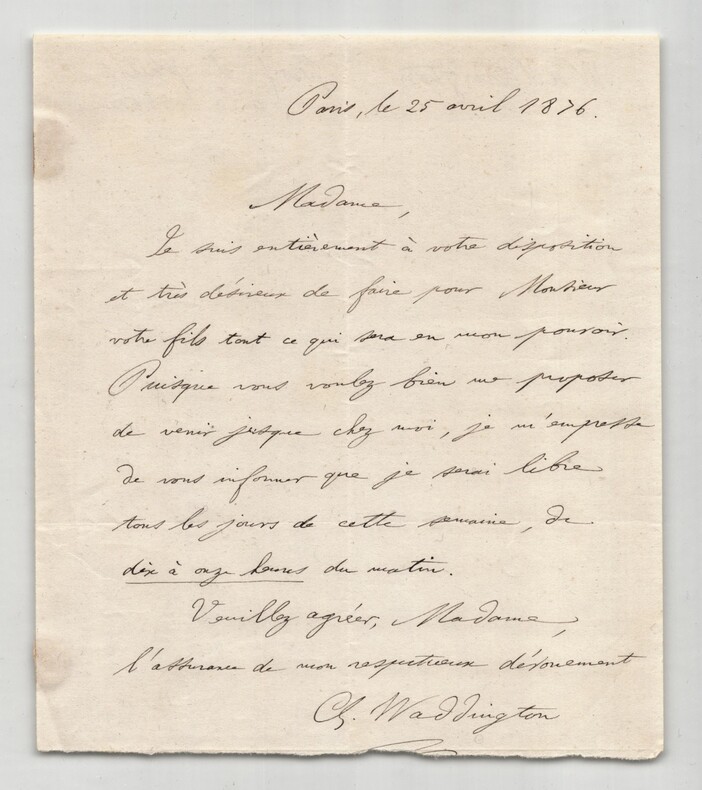 Paris, le 25 avril 1876.
Madame,
Je suis entièrement à votre disposition
et très désireux de faire pour Monsieur
votre fils tout ce qui sera en mon pouvoir.
Puisque vous voulez bien me proposer
de venir jusque chez moi, je m'empresse
de vous informer que je serai libre
tous les jours de cette semaine, de
dix à onze heures du matin.
Veuillez agréer, Madame,
l'assurance de mon respectueux dévouement
Ch. Waddington